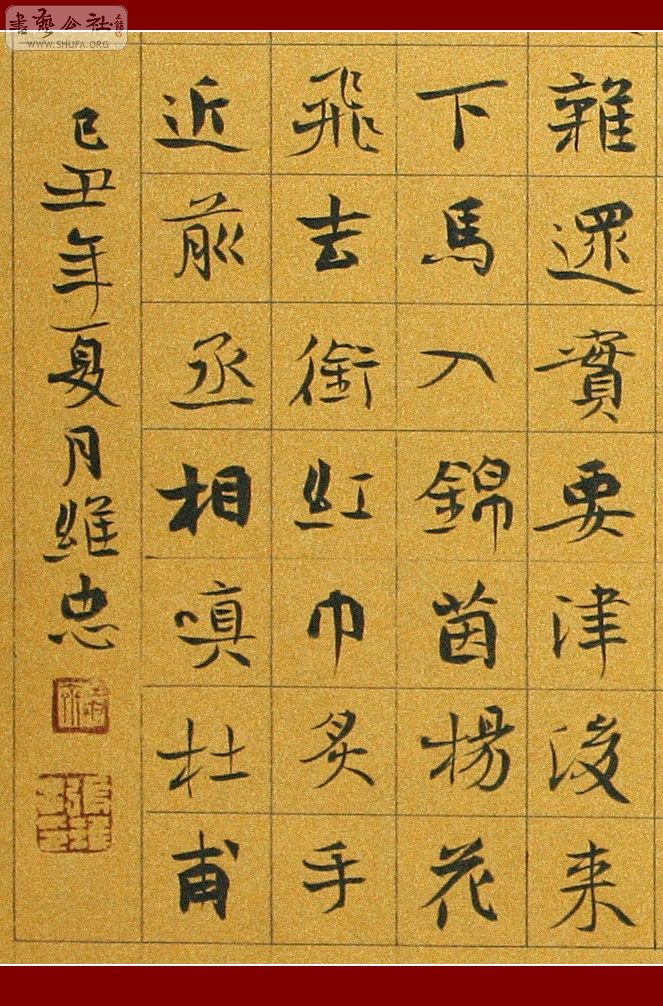 書藝公社
WWW.SHUFA.ORG
雜遝實要津後来
下馬入錦茵楊花
飛去銜紅巾炙手
近前丞相嗔杜甫
己丑年夏月維忠